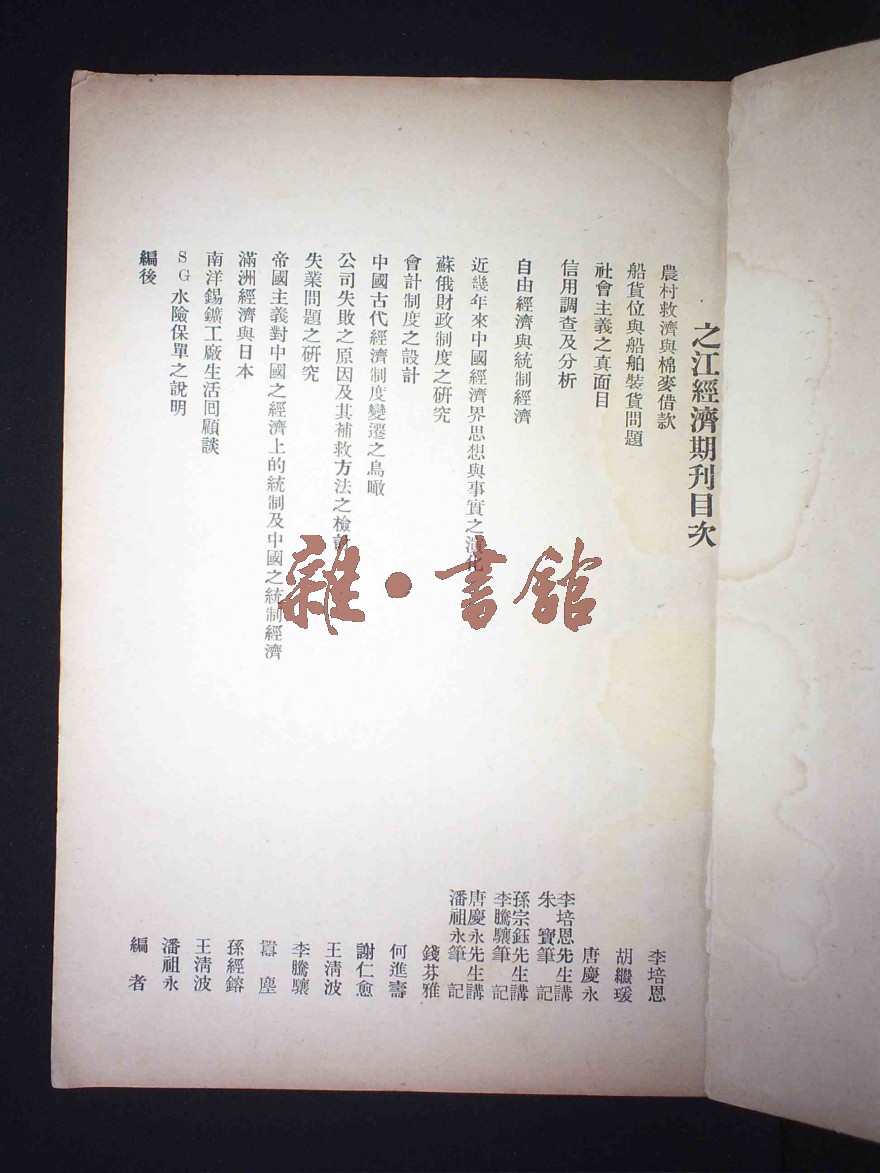 之江經濟期刊目次
農村救濟與棉麥借款
李培恩
船貨位與船舶裝貨問題
胡繼瑗
社會主義之真面目
唐慶永
信用調查及分析
李培恩先生講
朱寶筆記
自由經濟與統制經濟
孫宗鈺先生講
李騰驤筆記
近幾年來中國經濟界思想與事實之演化
唐慶永先生講
潘祖永筆記
蘇俄財政制度之硏究
錢芬雅
會計制度之設計
何進壽
中國古代經濟制度變遷之鳥瞰
謝仁愈
公司失敗之原因及其補救方法之檢討
王淸波
失業問題之硏究
李騰驤
帝國主義對中國之經濟上的統制及中國之統制經濟
囂塵
滿洲經濟與日本
孫經鎔
南洋錫鑛工廠生活回顧談
王淸波
SG水險保單之說明
潘祖永
編後
編者
雜·書館